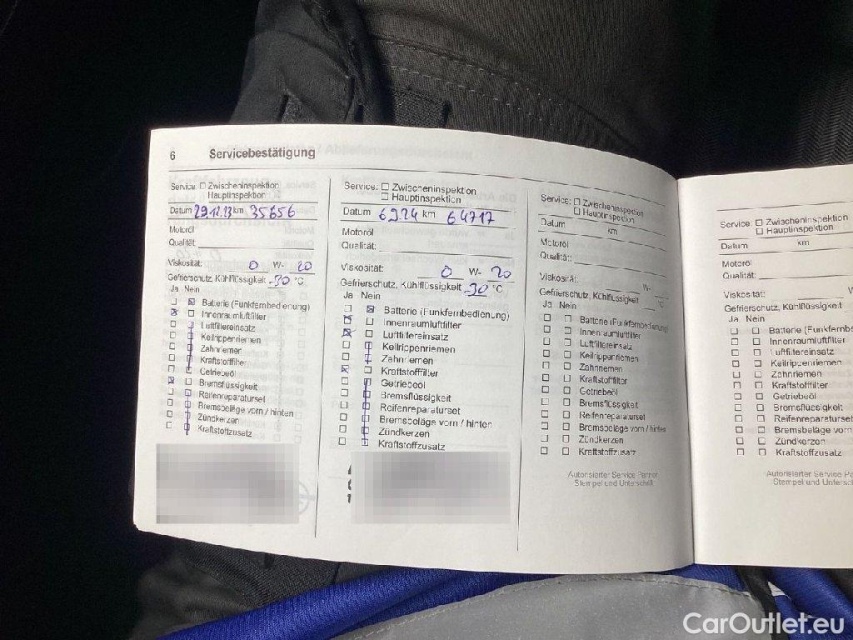 6 Servicebestätigung
Service: ☐ Zwischeninspektion
☐ Hauptinspektion
Datum km 35656
Motoröl
Qualität:
Viskosität: 0 W- 20
Gefrierschutz, Kühlflüssigkeit -30 °C
Ja Nein
Batterie (Funkfernbedienung)
Innenraumluftfilter
Luftfiltereinsatz
Keilrippenriemen
Zahnriemen
Kraftstofffilter
Getriebeöl
Bremsflüssigkeit
Reifenreparaturset
Bremsbeläge vorn / hinten
Zündkerzen
Kraftstoffzusatz
Service: ☐ Zwischeninspektion
☐ Hauptinspektion
Datum km 64717
Motoröl
Qualität:
Viskosität: 0 W- 20
Gefrierschutz, Kühlflüssigkeit -30 °C
Ja Nein
Batterie (Funkfernbedienung)
Innenraumluftfilter
Luftfiltereinsatz
Keilrippenriemen
Zahnriemen
Kraftstofffilter
Getriebeöl
Bremsflüssigkeit
Reifenreparaturset
Bremsbeläge vorn / hinten
Zündkerzen
Kraftstoffzusatz
Service: ☐ Zwischeninspektion
☐ Hauptinspektion
Datum km
Motoröl
Qualität:
Viskosität: W-
Gefrierschutz, Kühlflüssigkeit
Ja Nein
Batterie (Funkfernbedienung
Innenraumluftfilter
Luftfiltereinsatz
Keilrippenriemen
Zahnriemen
Kraftstofffilter
Getriebeöl
Bremsflüssigkeit
Reifenreparaturset
Bremsbeläge vorn / hinten
Zündkerzen
Kraftstoffzusatz
Autorisierter Service Partner
Stempel und Unterschrift
Service: ☐ Zwischeninspektion
☐ Hauptinspektion
Datum km
Motoröl
Qualität:
Viskosität: W-
Gefrierschutz, Kühlflüssigkeit
Ja Nein
Batterie (Funkfernb
Innenraumluftfilter
Luftfiltereinsatz
Keilrippenriemen
Zahnriemen
Kraftstofffilter
Getriebeöl
Bremsflüssigkeit
Reifenreparaturset
Bremsbeläge vorn
Zündkerzen
Kraftstoffzusatz
Autorisierter Service Pa
Stempel und Untersch
CarOutlet.eu